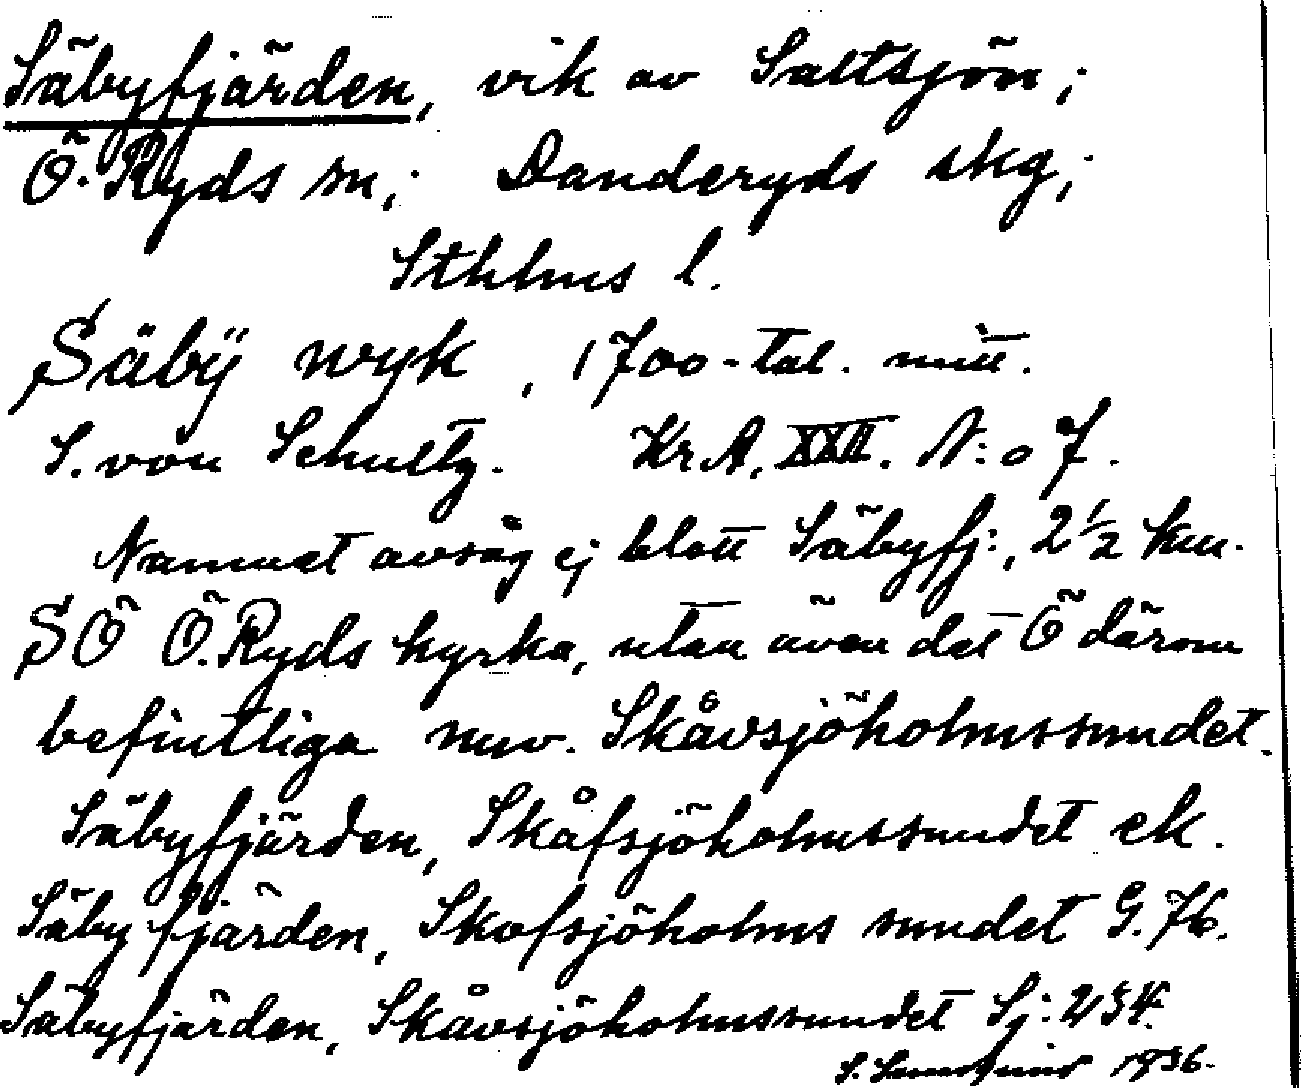 Säbyfjärden, vik av Saltsjön;
Ö. Ryds sn; Danderyds skg;
Sthlms l.
Säbÿ wyk, 1700-tal. mitt.
S. von Schultz. KrA. XXII. N:o 7.
Namnet avsåg ej blott Säbyfj:, 2 1/2 km.
SÖ Ö. Ryds kyrka, utan även det Ö därom
befintliga nuv. Skåvsjöholmssundet.
Säbyfjärden, Skåfsjöholmssundet ek.
Säby fjärden, Skofsjöholms sundet G. 76.
Säbyfjärden, Skåvsjöholmssundet Sj: 234.
S. 1936.